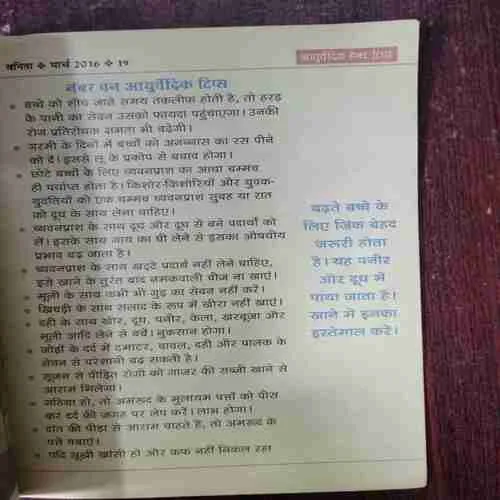 वनिता ❖ मार्च 2016 ❖ 19
आयुर्वेदिक हेल्थ टिप्स
नंबर वन आयुर्वेदिक टिप्स
• बच्चे को शौच जाते समय तकलीफ होती है, तो हरड़
के पानी का सेवन उसको फायदा पहुंचाएगा। उनकी
रोग प्रतिरोधक क्षमता भी बढ़ेगी।
• गरमी के दिनों में बच्चों को अनन्नास का रस पीने
को दें। इससे लू के प्रकोप से बचाव होगा।
• छोटे बच्चों के लिए च्यवनप्राश का आधा चम्मच
ही पर्याप्त होता है। किशोर-किशोरियों और युवक-
युवतियों को एक चम्मच च्यवनप्राश सुबह या रात
को दूध के साथ लेना चाहिए।
• च्यवनप्राश के साथ दूध और दूध से बने पदार्थों को
लें। इसके साथ गाय का घी लेने से इसका औषधीय
प्रभाव बढ़ जाता है।
• च्यवनप्राश के साथ खट्टे पदार्थ नहीं लेने चाहिए,
इसे खाने के तुरंत बाद नमकवाली चीज ना खाएं।
• मूली के साथ कभी भी गुड़ का सेवन नहीं करें।
• खिचड़ी के साथ सलाद के रूप में खीरा नहीं खाएं।
• दही के साथ खीर, दूध, पनीर, केला, खरबूजा और
मूली आदि लेने से बचें। नुकसान होगा।
• जोड़ों के दर्द में टमाटर, चावल, दही और पालक के
सेवन से परेशानी बढ़ सकती है।
• सूजन से पीड़ित रोगी को गाजर की सब्जी खाने से
आराम मिलेगा।
• गठिया हो, तो अमरूद के मुलायम पत्तों को पीस
कर दर्द की जगह पर लेप करें। लाभ होगा।
• दांत की पीड़ा से आराम चाहते हैं, तो अमरूद के
पत्ते चबाएं।
• यदि सूखी खांसी हो और कफ नहीं निकल रहा
बढ़ते बच्चे के
लिए जिंक बेहद
जरूरी होता
है। यह पनीर
और दूध में
पाया जाता है।
खाने में इनका
इस्तेमाल करें।